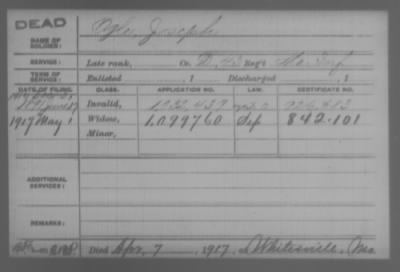 DEAD
NAME OF SOLDIER: Ogle, Joseph
SERVICE: Late rank, Co. D, 43 Reg't Mo. Inf
TERM OF SERVICE: Enlisted , 1 Discharged , 1
DATE OF FILING. CLASS. APPLICATION NO. LAW. CERTIFICATE NO.
Invalid,
1917 May 1 Widow, 1,099760 Sep 842.101
Minor,
ADDITIONAL SERVICES:
REMARKS:
Died Apr. 7, 1917, at Whitesville, Mo.